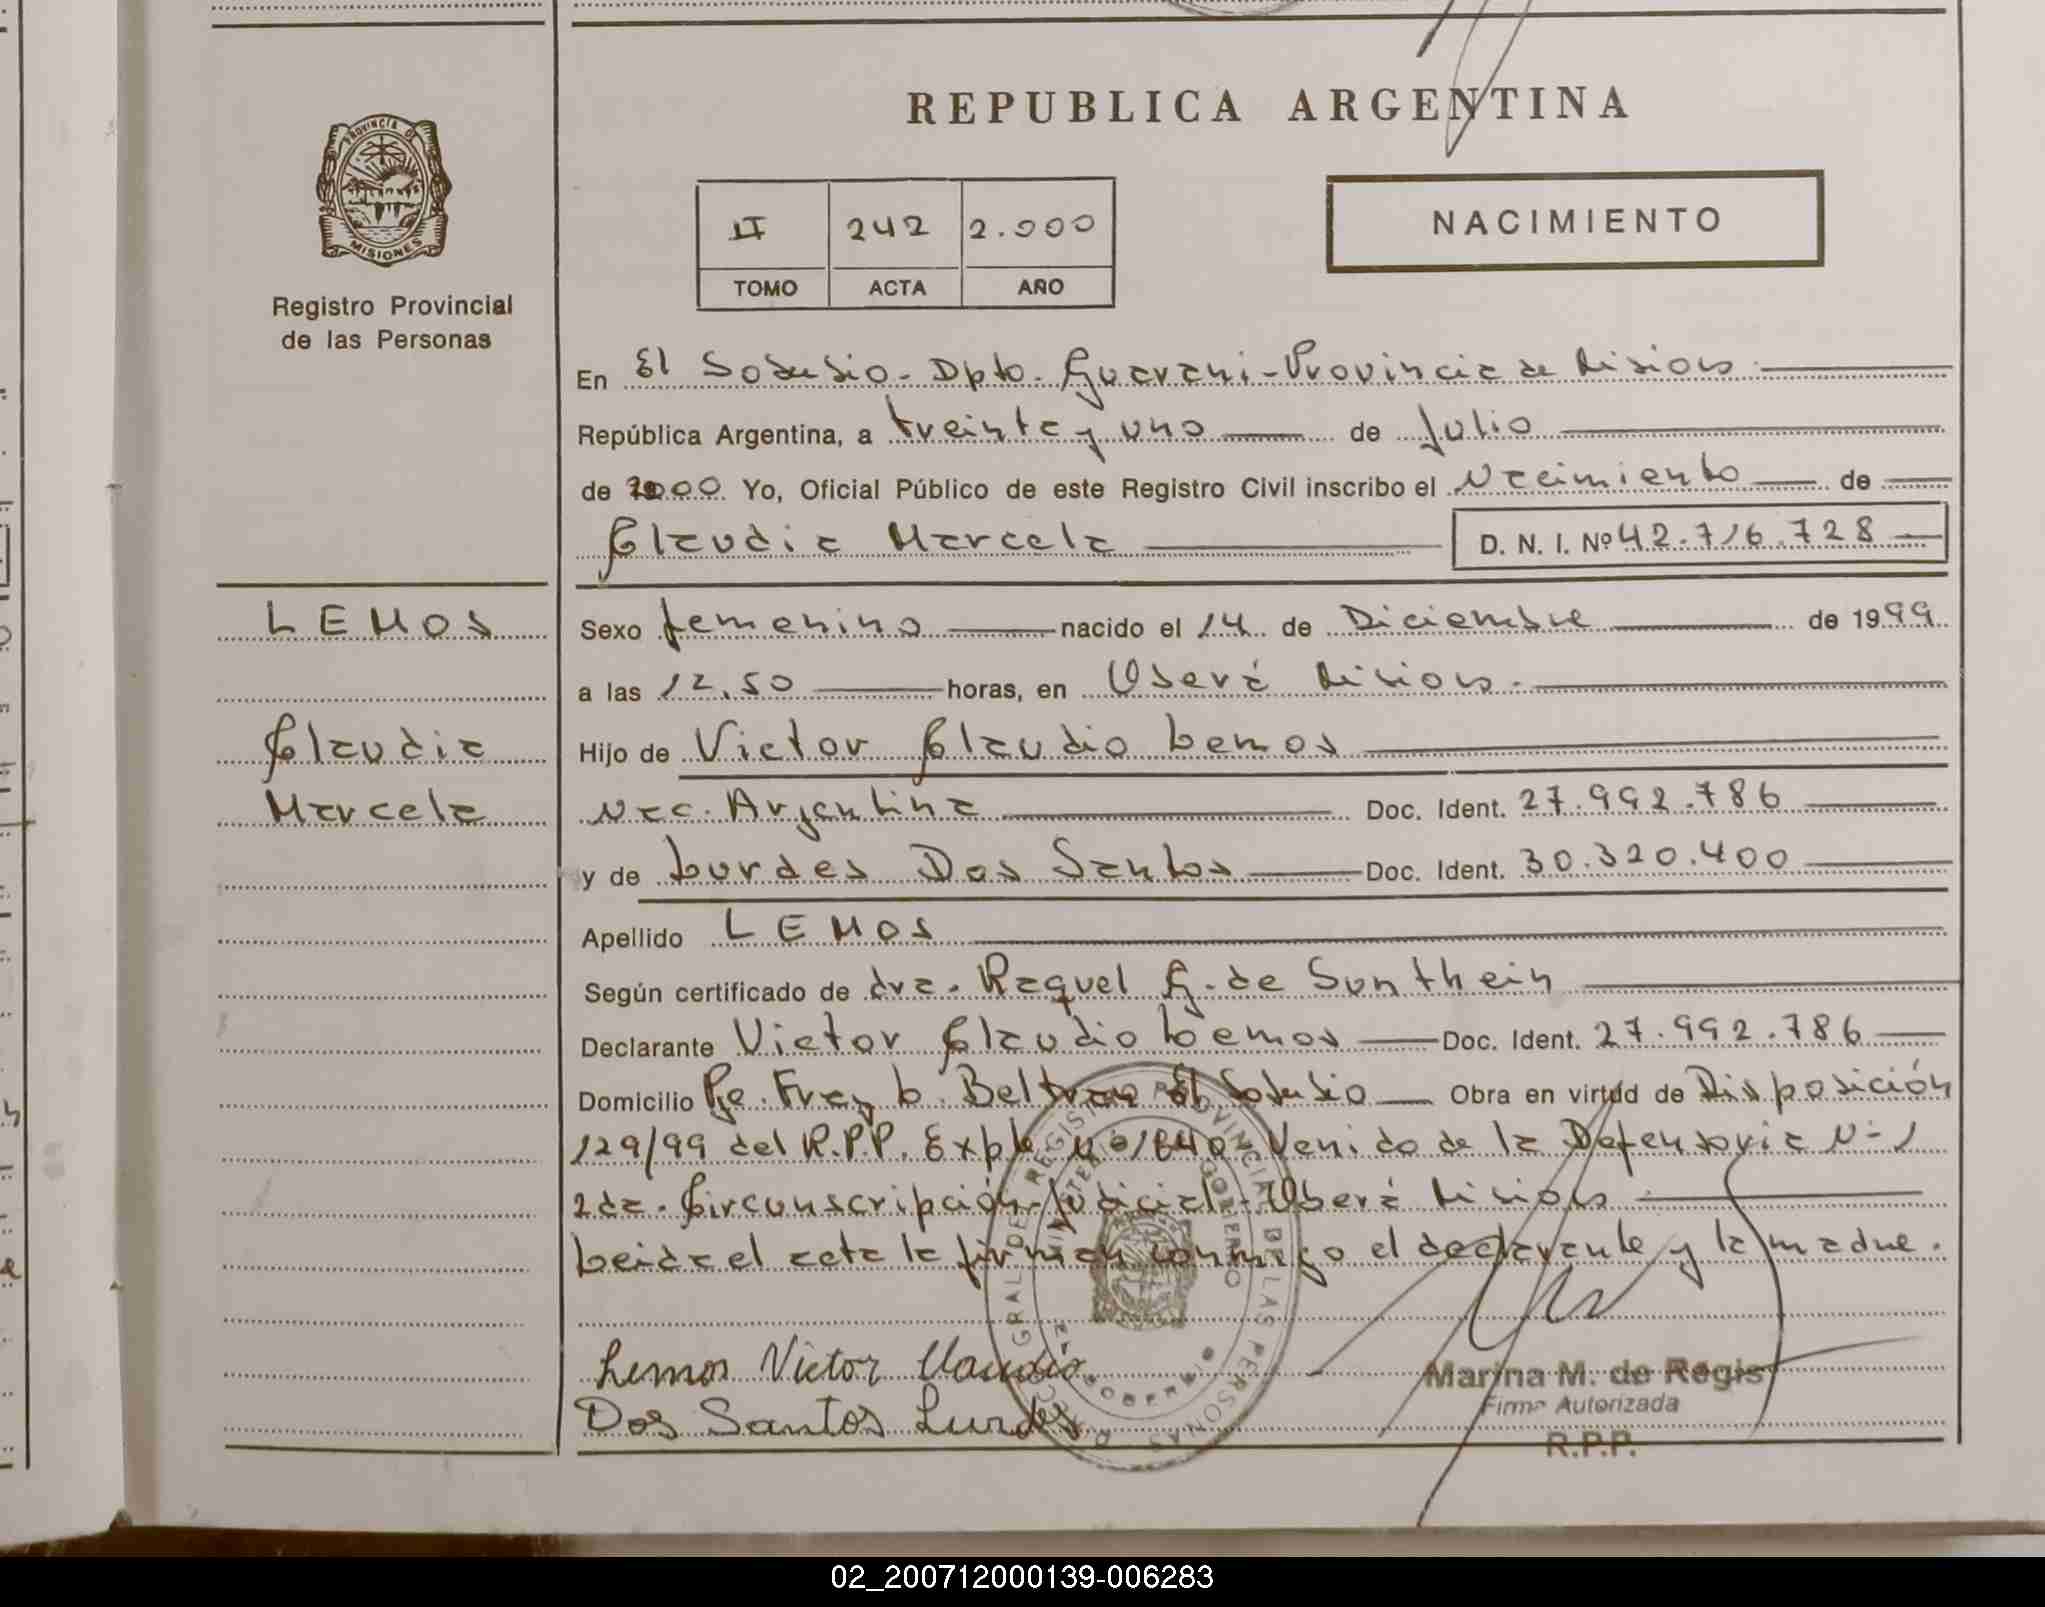 REPUBLICA ARGENTINA
PROVINCIA DE
MISIONES
Registro Provincial
de las Personas
II 242 2.000
TOMO ACTA AÑO
NACIMIENTO
En El Soberbio - Dpto. Guaraní - Provincia de Misiones
República Argentina, a treinta y uno de Julio
de 2000 Yo, Oficial Público de este Registro Civil inscribo el Nacimiento de
Claudia Marcela D. N. I. Nº 42.716.728
LEMOS
Claudia
Marcela
Sexo femenino nacido el 14 de Diciembre de 1999
a las 12,50 horas, en Oberá Misiones.
Hijo de Victor Claudio Lemos
Nac. Argentina Doc. Ident. 27.992.786
y de Lurdes Dos Santos Doc. Ident. 30.320.400
Apellido LEMOS
Según certificado de dra. Raquel G. de Sunthein
Declarante Victor Claudio Lemos Doc. Ident. 27.992.786
Domicilio Pje. Fray L. Beltran El Soberbio Obra en virtud de Disposición
129/99 del R.P.P. Expte Nº 1840 - Venido de la Defensoria Nº 1
2da. Circunscripción Judicial - Oberá Misiones
Leida el acta la firman conmigo el declarante y la madre.
Lemos Victor Claudio
Dos Santos Lurdes
GRAL DE REGISTRO PROVINCIAL DE LAS PERSONAS
Marina M. de Regis
Firma Autorizada
R.P.P.
02_200712000139-006283